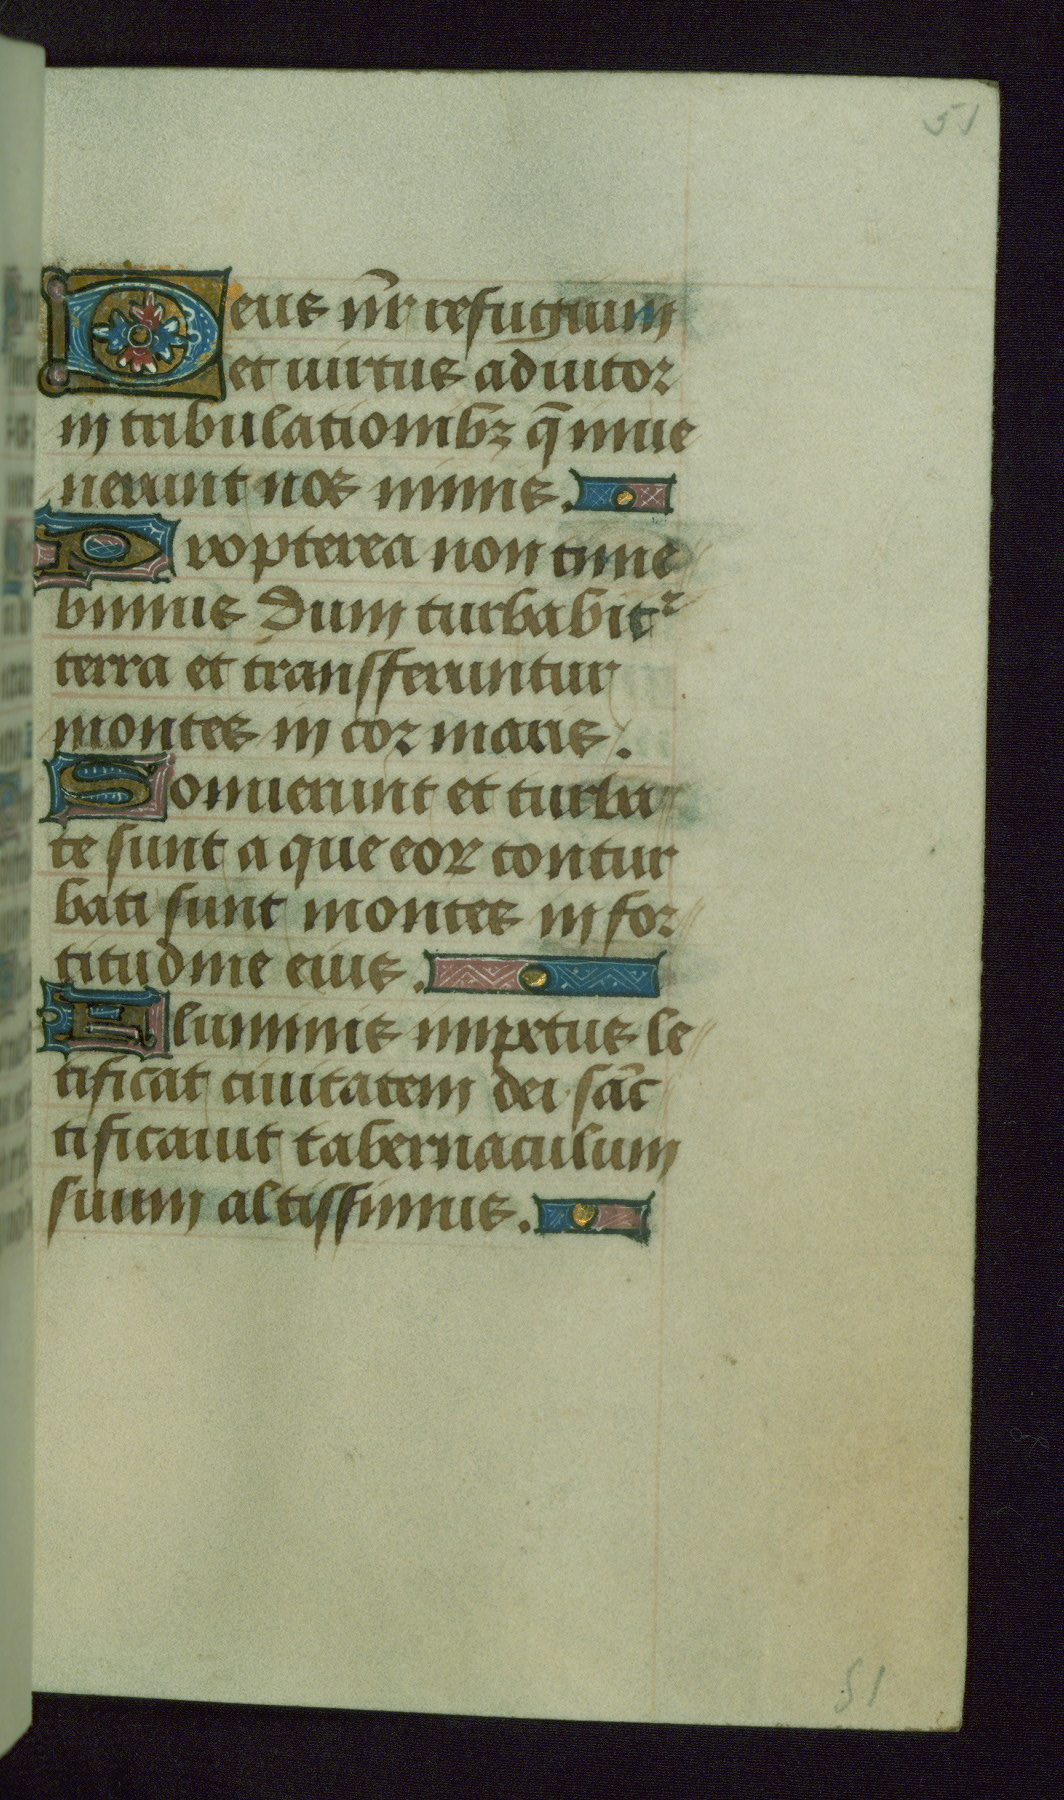 51
Deus nr̄ refugium
et uirtus adiutor
in tribulationibꝫ q̄ inue
nerunt nos nimis.
Propterea non time
bimus dum turbabit᷑
terra et transferuntur
montes in cor maris.
Sonuerunt et turba
te sunt aque eoꝝ contur
bati sunt montes in for
titudine eius.
Fluminis impetus le
tificat ciuitatem dei sāc
tificauit tabernaculum
suum altissimus.
51